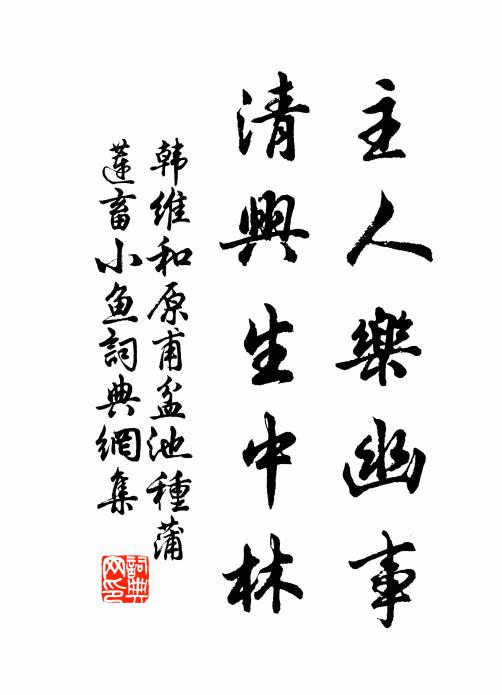 主人樂幽事
清興生中林
韩維和原甫盆池種蒲
蓮畜小魚詞典網集
詞典
网印